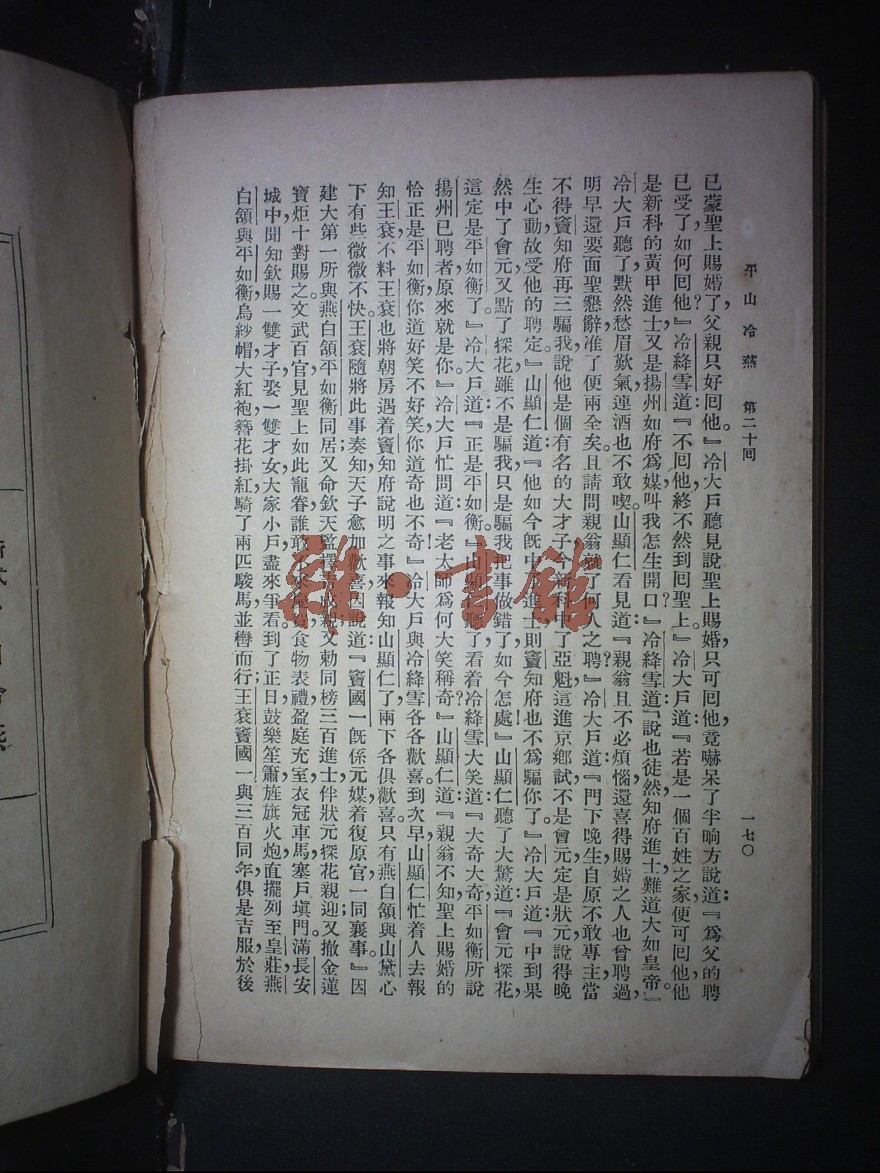 平山冷燕　第二十回
一七〇
已蒙聖上賜婚了，父親只好囘他。』冷大戶聽見說聖上賜婚，只可囘他，竟嚇呆了半晌，方說道：『爲父的聘
已受了，如何囘他？』冷絳雪道：『不囘他，終不然到囘聖上。』冷大戶道：『若是一個百姓之家，便可囘他，他
是新科的黃甲進士，又是揚州知府爲媒，叫我怎生開口？』冷絳雪道：『說也徒然，知府進士，難道大如皇帝。』
冷大戶聽了，默然愁眉歎氣，連酒也不敢喫。山顯仁看見道：『親翁且不必煩惱，還喜得賜婚之人也曾聘過，
明早還要面聖懇辭，准了便兩全矣。且請問親翁，就了何人之聘？』冷大戶道：『門下晚生自原不敢專主，當
不得竇知府再三騙我，說他是個有名的大才子，今新科中了亞魁，這進京鄉試，不是會元，定是狀元，說得晚
生心動，故受他的聘定。』山顯仁道：『他如今旣中進士，則竇知府也不爲騙你了。』冷大戶道：『中到果
然中了會元，又點了探花，雖不是騙我，只是騙我把事做錯了，如今怎處！』山顯仁聽了大驚道：『會元探花，
這定是平如衡了。』冷大戶道：『正是平如衡。』山顯仁聽了，看着冷絳雪大笑道：『大奇大奇，平如衡所說
揚州已聘者，原來就是你。』冷大戶忙問道：『老太師爲何大笑稱奇？』山顯仁道：『親翁不知，聖上賜婚的
恰正是平如衡，你道好笑不好笑，你道奇也不奇！』冷大戶與冷絳雪各各歡喜。到次早，山顯仁忙着人去報
知王袞，不料王袞也將朝房遇着竇知府說明之事，來報知山顯仁了，兩下各俱歡喜。只有燕白頷與山黛心
下有些微微不快。王袞隨將此事奏知，天子愈加歡喜，因說道：『竇國一旣係元媒，着復原官，一同襄事。』因
建大第一所，與燕白頷平如衡同居；又命欽天監擇吉成親；又勅同榜三百進士，伴狀元探花親迎；又撤金蓮
寶炬十對賜之。文武百官見聖上如此寵眷，誰敢不來慶賀，食物表禮，盈庭充室，衣冠車馬，塞戶塡門。滿長安
城中聞知欽賜一雙才子，娶一雙才女，大家小戶，盡來爭看。到了正日，鼓樂笙簫，旌旗火炮，直擺列至皇莊。燕
白頷與平如衡，烏紗帽，大紅袍，簪花掛紅，騎了兩匹駿馬，並轡而行；王袞竇國一與三百同年，俱是吉服，於後
雜·書館